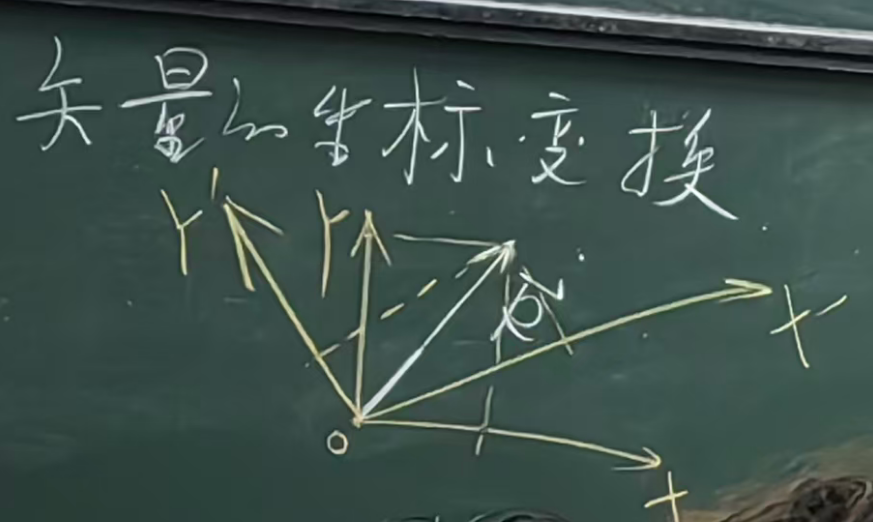 矢量的坐标变换
Y' Y
X'
O
X